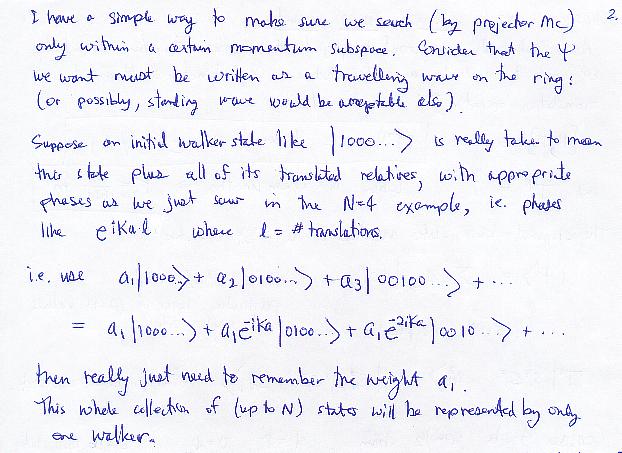 2.
I have a simple way to make sure we search (by projector MC)
only within a certain momentum subspace. Consider that the Ψ
we want must be written as a travelling wave on the ring:
(or possibly, standing wave would be acceptable also)
Suppose an initial walker state like |1000...⟩ is really taken to mean
this state plus all of its translated relatives, with appropriate
phases as we just saw in the N=4 example, ie. phases
like e^{iKa·l} where l = # translations.
i.e. use a₁|1000...⟩ + a₂|0100...⟩ + a₃|00100...⟩ + ...
= a₁|1000...⟩ + a₁e^{-iKa}|0100...⟩ + a₁e^{-2iKa}|0010...⟩ + ...
then really just need to remember the weight a₁.
This whole collection of (up to N) states will be represented by only
one walker.